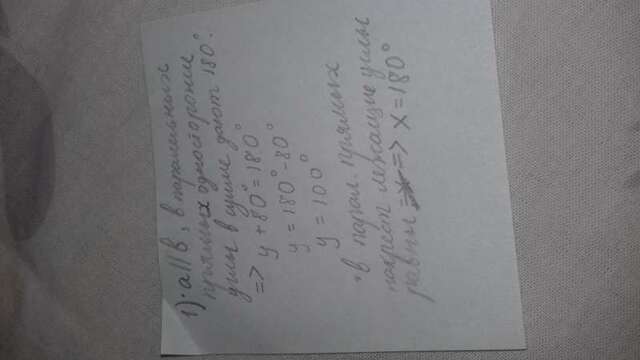 1) • a||b, в паралельных
прямых односторонние
углы в сумме дают 180°.
=> y + 80° = 180°
y = 180° - 80°
y = 100°
• в парал. прямых
накрест лежащие углы
равны => x = 180°